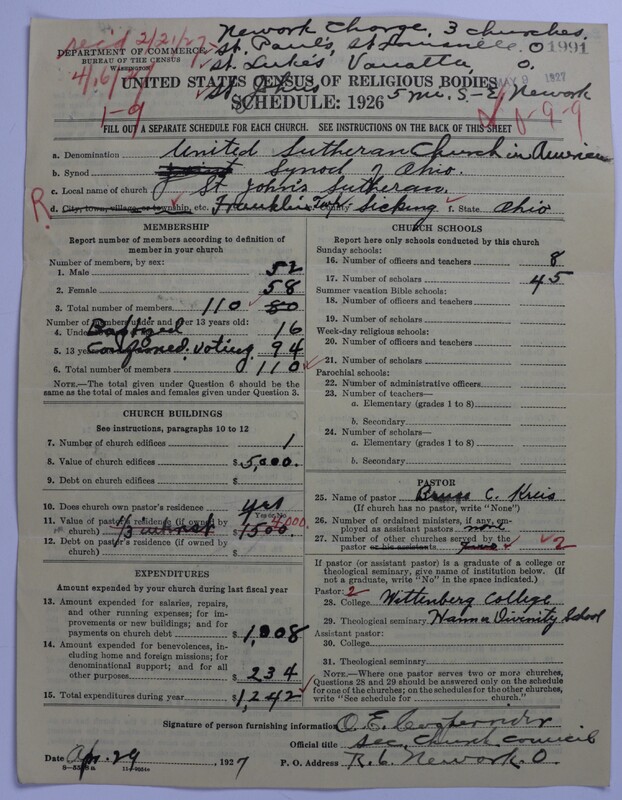 Newark Charge, 3 churches.
rec'd 2/21/27
DEPARTMENT OF COMMERCE
St. Paul's, St Louisville. O 1991
BUREAU OF THE CENSUS
WASHINGTON
St. Luke's Vanatta, O.
4/6/27
MAY 9 1927
UNITED STATES CENSUS OF RELIGIOUS BODIES
St. Johns 5 mi. S-E. Newark
SCHEDULE: 1926
1-9
FILL OUT A SEPARATE SCHEDULE FOR EACH CHURCH. SEE INSTRUCTIONS ON THE BACK OF THIS SHEET
a. Denomination United Lutheran Church in America
b. Synod Synod of Ohio.
c. Local name of church St John's Lutheran.
R
d. City, town, village, or township, etc. Franklin Twp. County Licking f. State Ohio
MEMBERSHIP
Report number of members according to definition of
member in your church
Number of members, by sex:
1. Male 52
2. Female 58
3. Total number of members 110 80
Number of members under and over 13 years old:
4. Under Baptized 16
5. 13 years Confirmed. Voting. 94
6. Total number of members 110
NOTE.—The total given under Question 6 should be the
same as the total of males and females given under Question 3.
CHURCH BUILDINGS
See instructions, paragraphs 10 to 12
7. Number of church edifices 1
8. Value of church edifices $ 5,000.
9. Debt on church edifices $
10. Does church own pastor's residence? yes
Yes or No
11. Value of pastor's residence (if owned by
church) 1/3 interest $ 1500. 4,000.
12. Debt on pastor's residence (if owned by
church) $
EXPENDITURES
Amount expended by your church during last fiscal year
13. Amount expended for salaries, repairs,
and other running expenses; for im-
provements or new buildings; and for
payments on church debt $ 1,008
14. Amount expended for benevolences, in-
cluding home and foreign missions; for
denominational support; and for all
other purposes 234
15. Total expenditures during year $ 1,242
CHURCH SCHOOLS
Report here only schools conducted by this church
Sunday schools:
16. Number of officers and teachers 8
17. Number of scholars 45
Summer vacation Bible schools:
18. Number of officers and teachers
19. Number of scholars
Week-day religious schools:
20. Number of officers and teachers
21. Number of scholars
Parochial schools:
22. Number of administrative officers
23. Number of teachers—
a. Elementary (grades 1 to 8)
b. Secondary
24. Number of scholars—
a. Elementary (grades 1 to 8)
b. Secondary
PASTOR
25. Name of pastor C. Kreis
(If church has no pastor, write "None")
26. Number of ordained ministers, if any, em-
ployed as assistant pastors none
27. Number of other churches served by the
pastor or his assistants two 2
If pastor (or assistant pastor) is a graduate of a college or
theological seminary, give name of institution below. (If
not a graduate, write "No" in the space indicated.)
Pastor: 2
28. College Wittenberg College
29. Theological seminary Hamma Divinity School
Assistant pastor:
30. College
31. Theological seminary
NOTE.—Where one pastor serves two or more churches,
Questions 28 and 29 should be answered only on the schedule
for one of the churches; on the schedules for the other churches,
write "See schedule for church."
Signature of person furnishing information O. E. Cooperrider
Official title Sec. Church Council
Date Apr. 29, 1927 P. O. Address R. 6. Newark. O.